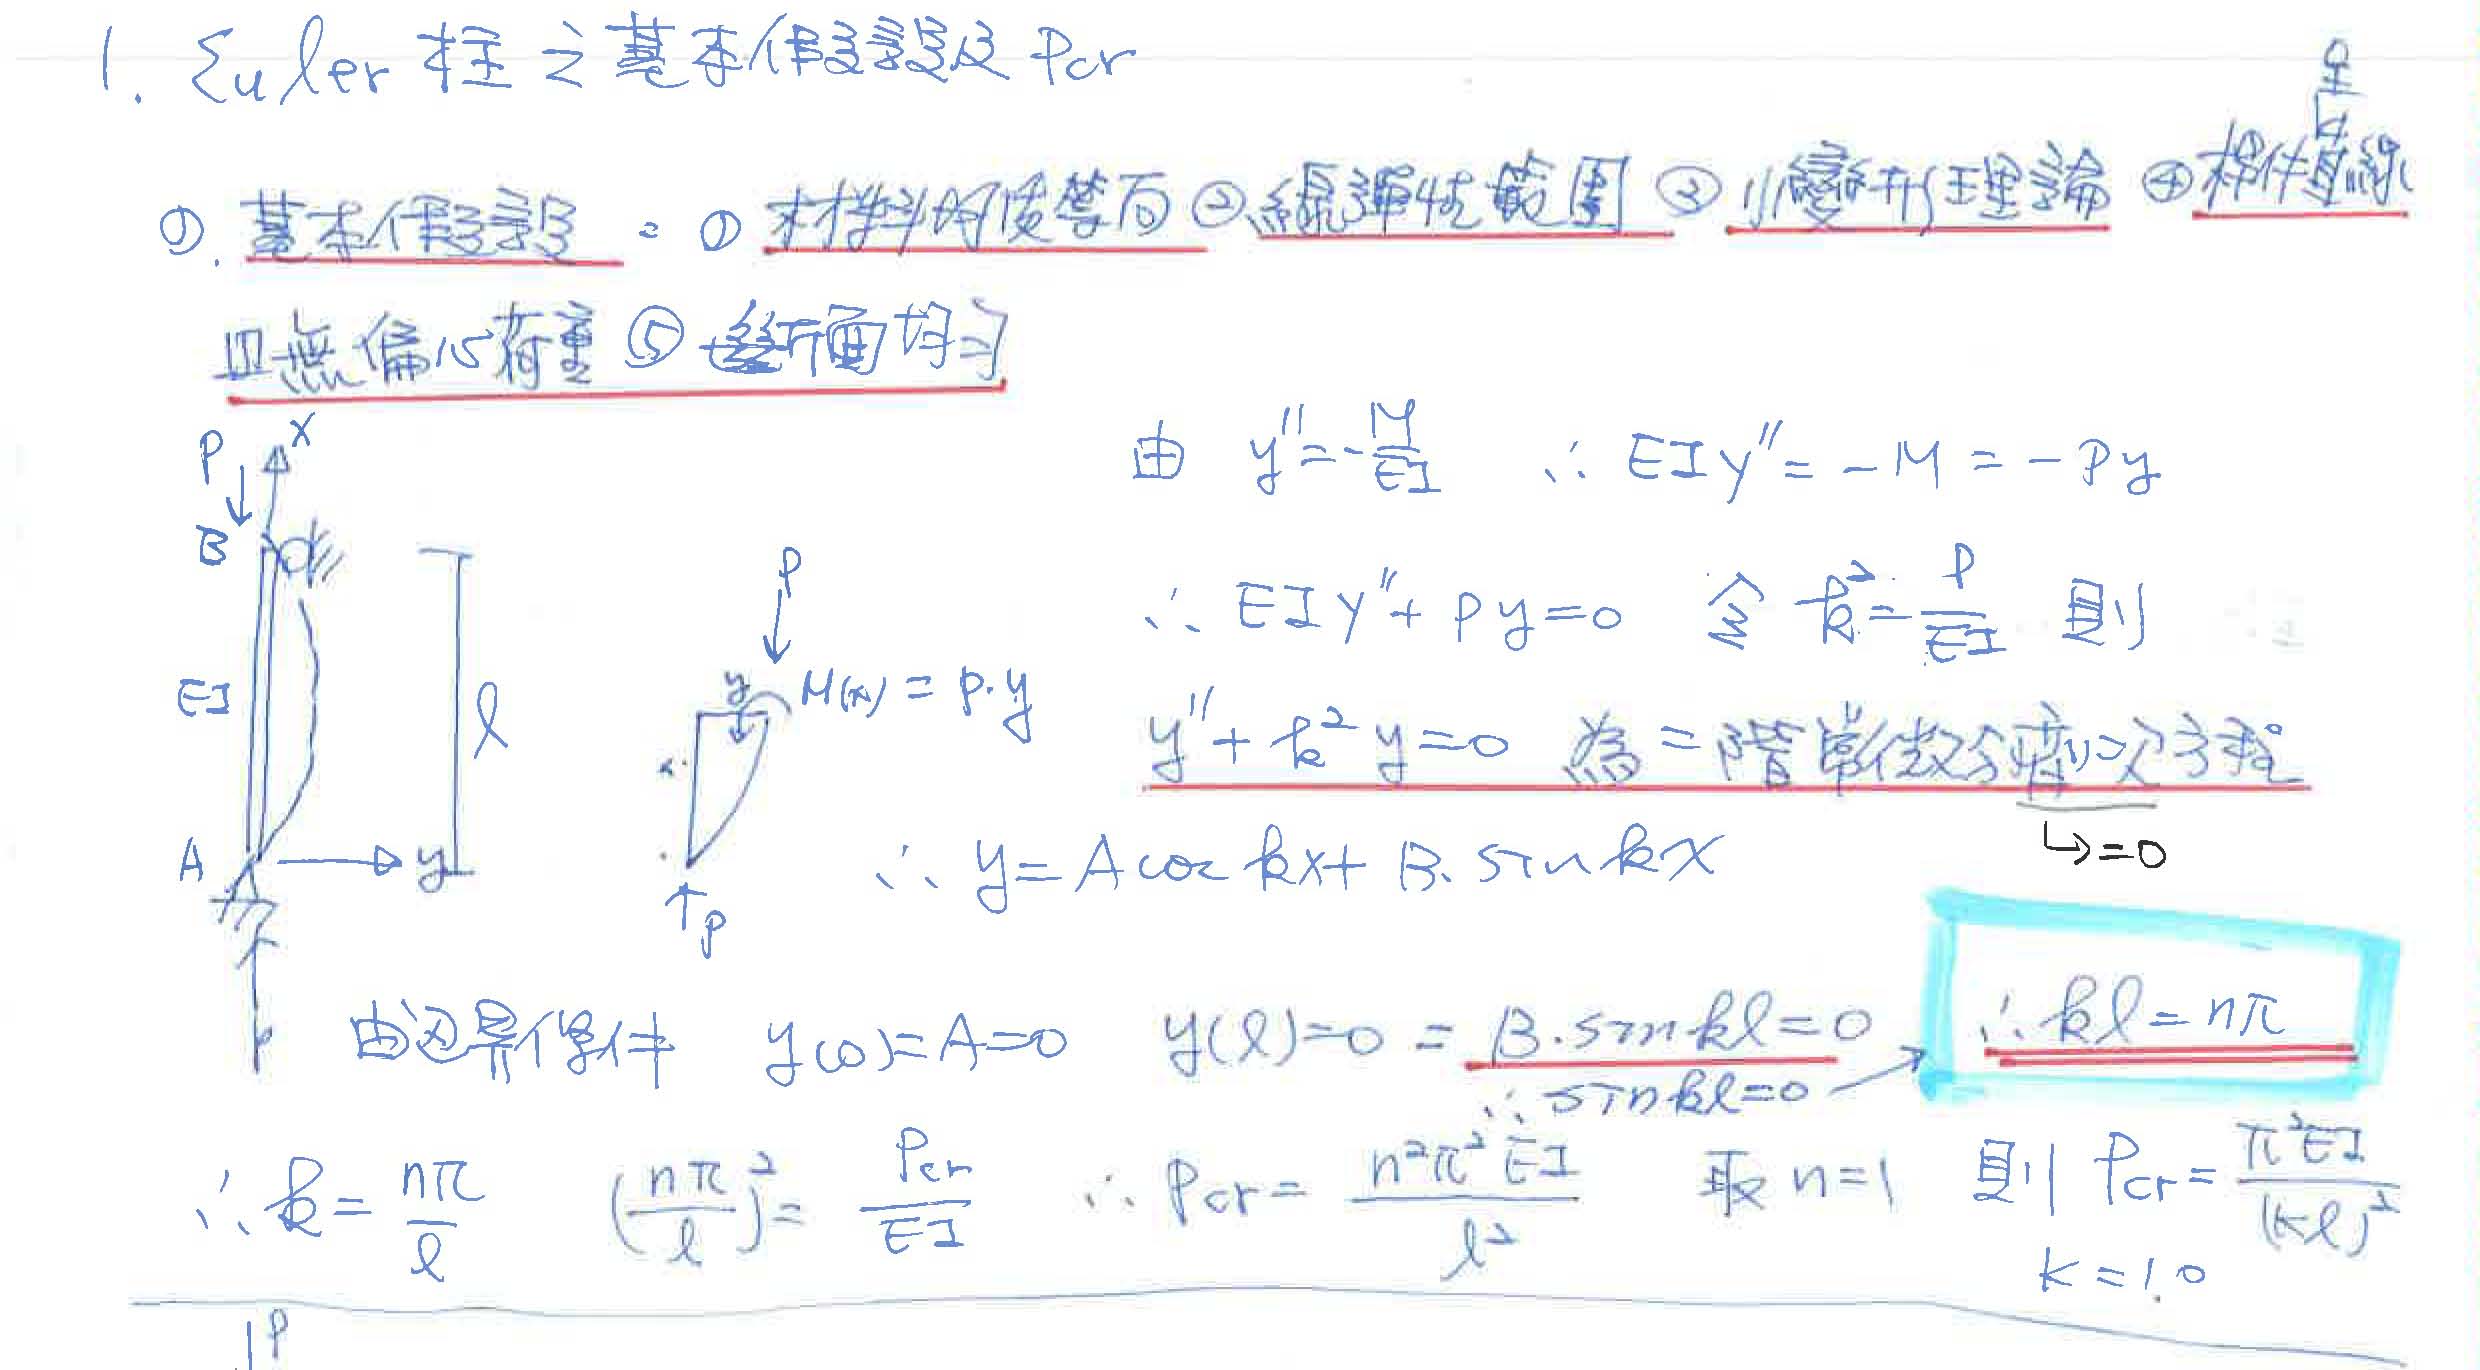 1. Euler 柱之基本假設及 Pcr
呈
①. 基本假設：① 材料均質等向 ② 線彈性範圍 ③ 小變形理論 ④ 桿件直線
且無偏心荷重 ⑤ 斷面均勻
P x
B
EI l
A y
P
y M(x) = P·y
x
↑P
由 y'' = -M/EI ∴ EIy'' = -M = -Py
∴ EIy'' + Py = 0 令 k² = P/EI 則
y'' + k²y = 0 為二階常微分齊次方程
↳ = 0
∴ y = A cos kx + B·sin kx
由邊界條件 y(0) = A = 0 y(l) = 0 = B·sin kl = 0 ∴ kl = nπ
∴ sin kl = 0
∴ k = nπ/l (nπ/l)² = Pcr/EI ∴ Pcr = n²π²EI/l² 取 n = 1 則 Pcr = π²EI/(kl)²
k = 1.0
P